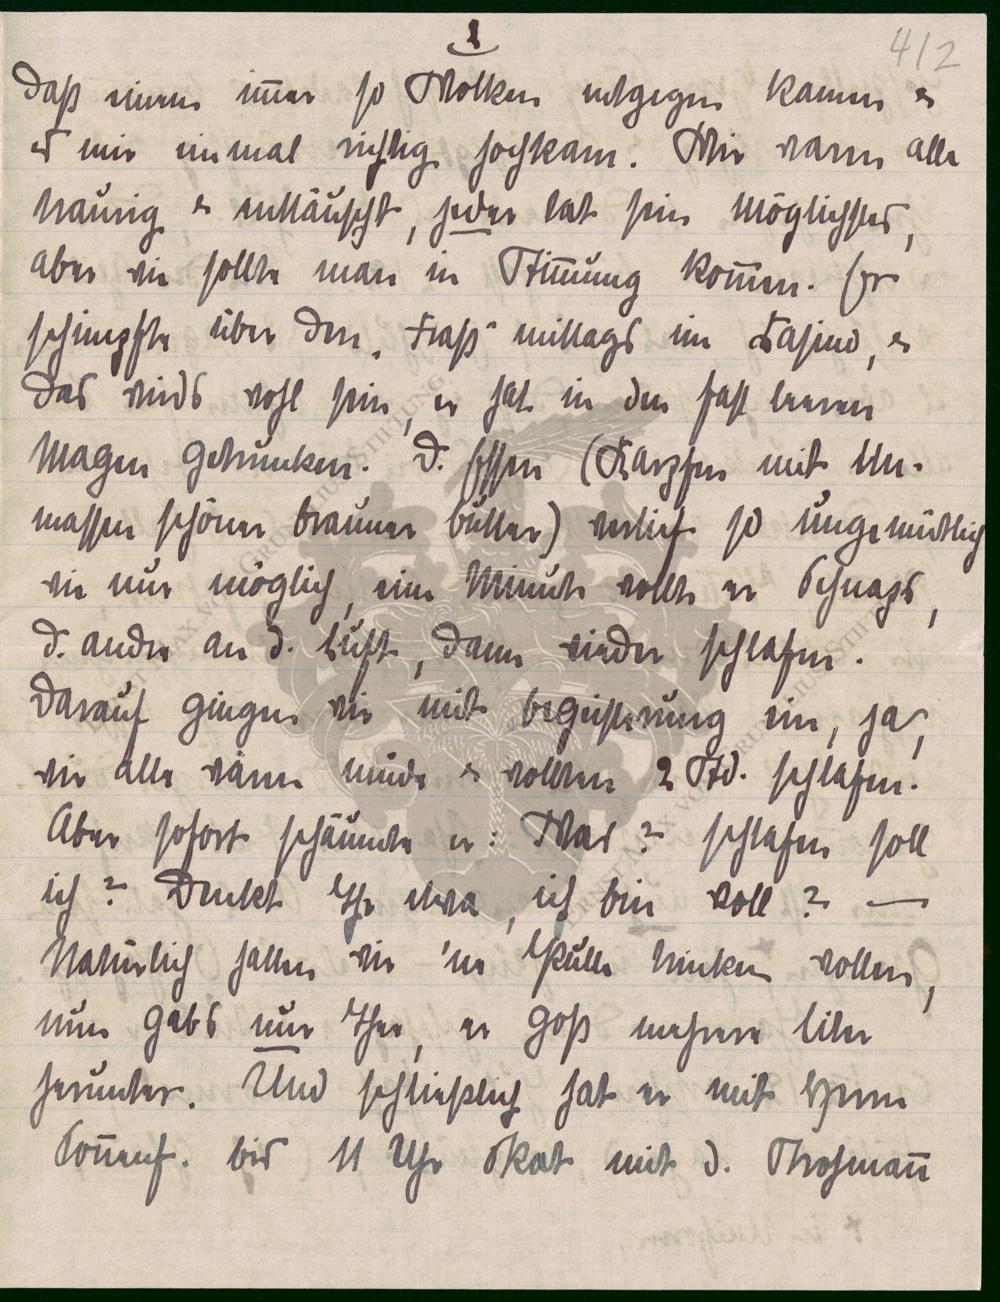 1
4/2
daß einem im̄er so Wolken entgegen kamen &
es mir einmal richtig hochkam. Wir waren alle
traurig & enttäuscht, jeder tat sein möglichstes,
aber wie sollte man in Stim̄ung kom̄en. Er
schimpfte über den „Fraß" mittags im Kasino, &
das wirds wohl sein, er hat in den fast leeren
Magen getrunken. D. Essen (Karpfen mit Un-
massen schöner brauner butter) verlief so ungemütlich
wie nur möglich, eine Minute wollte er Schnaps,
d. andre an d. Luft, dann wieder schlafen.
Darauf gingen wir mit begeisterung ein, ja,
wir alle wären müde & wollten 2 Std. schlafen.
Aber sofort schäumte er: Was? schlafen soll
ich? Denkt Ihr etwa, ich bin voll? —
Natürlich hatten wir 'ne Pulle trinken wollen,
nun gabs nur Thee, er goß mehrere liter
herunter. Und schließlich hat er mit Herrn
Son̄enf. bis 11 Uhr Skat mit d. Strohman̄
GRUNELIUSSTIFTUNG